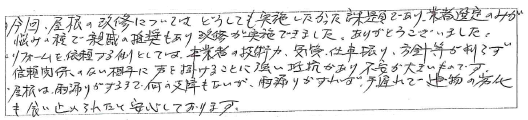 今回、屋根の改修についてはどうしても実施したかった課題であり、業者選定のみが
悩みの種で親戚の推奨もあり改修が実施できました。ありがとうございました。
リフォームを依頼する側としては、本業者の技術力、気質、仕事振り、方針等が判らず
信頼関係のない相手に声を掛けることに強い抵抗があり不安が大きいものです。
屋根は、雨漏りがするまで何の支障もないが、雨漏りがすれば手遅れで建物の劣化
も食い止められたと安心しております。